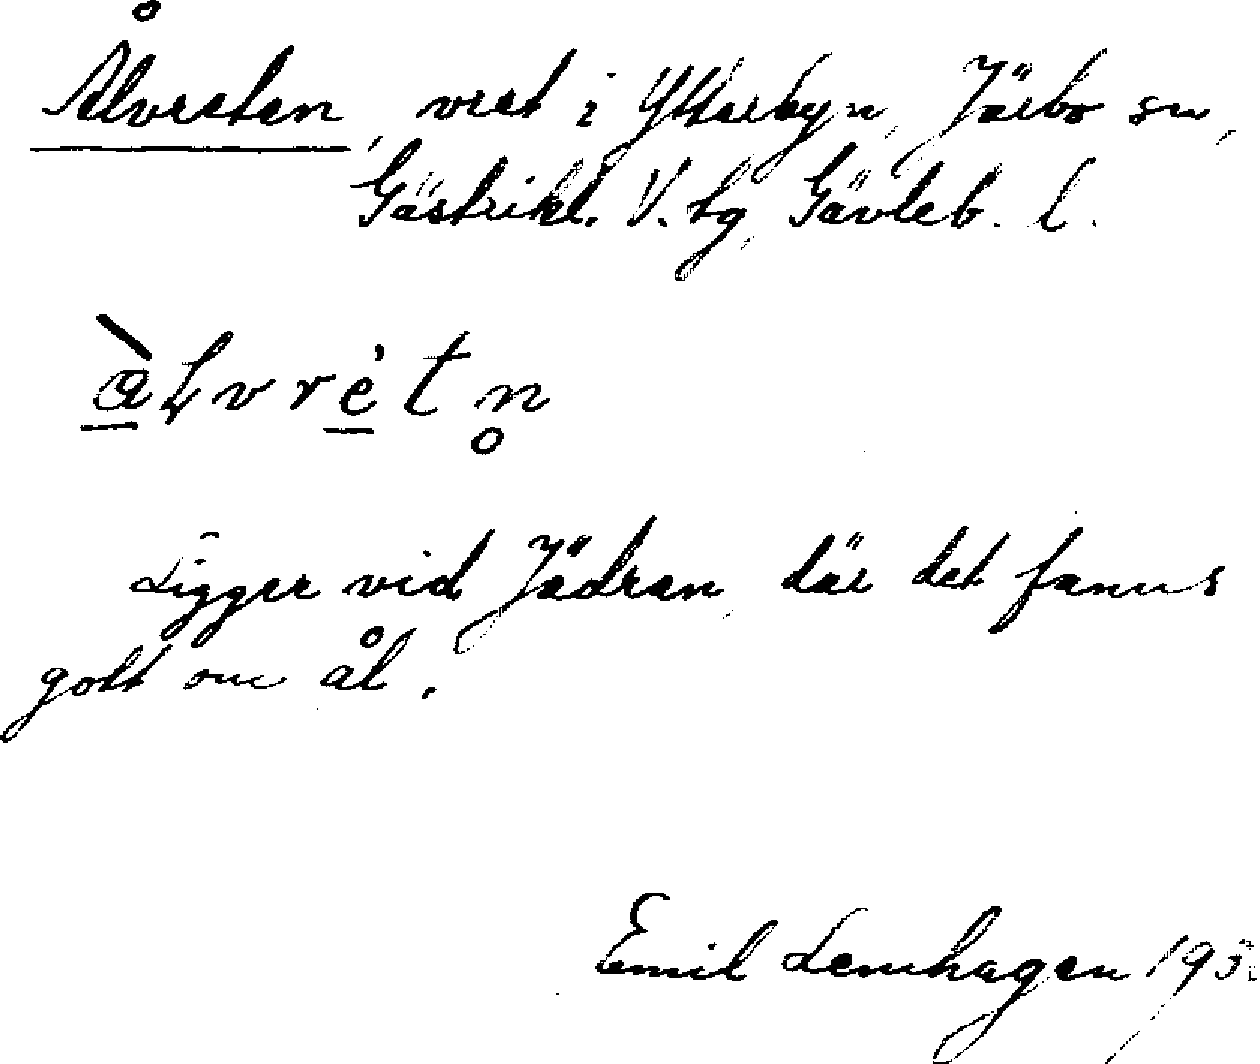 Ålvreten, vret i Ytterbyn, Järbo sn,
Gästrikl. V. tg, Gävleb. l.
ὰLvrètn̥
Ligger vid Jädran, där det fanns
gott om ål.
Emil Lemhagen